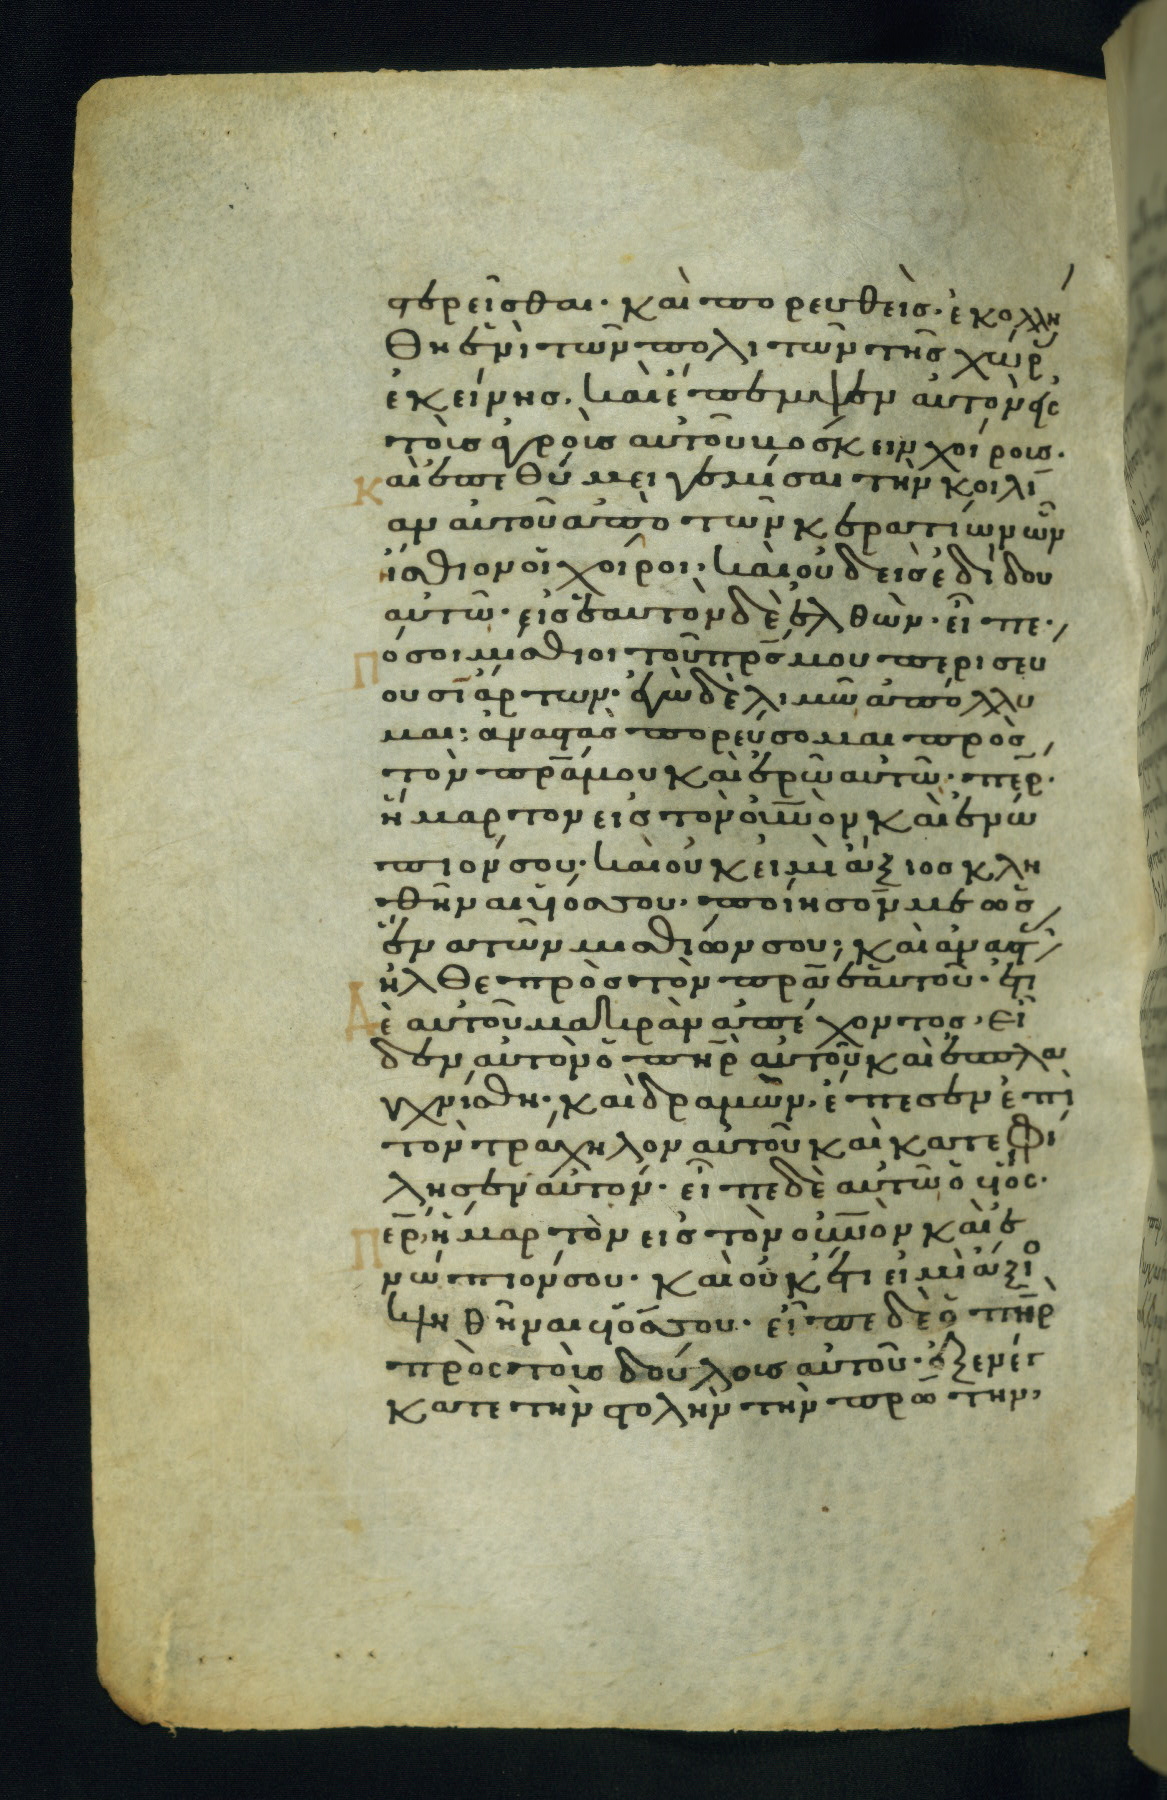 στερεῖσθαι· καὶ πορευθεὶς· ἐκολλή
θη ἑνὶ τῶν πολιτῶν τῆς χώρ
ἐκείνης. καὶ ἔπεμψεν αὐτὸν εἰς
τοὺς ἀγροὺς αὐτοῦ βόσκειν χοίρους.
Καὶ ἐπεθύμει γεμίσαι τὴν κοιλί
αν αὐτοῦ ἀπὸ τῶν κερατίων ὧν
ἤσθιον οἱ χοῖροι· καὶ οὐδεὶς ἐδίδου
αὐτῶ· εἰς ἑαυτὸν δὲ ἐλθὼν· εἶπε·
Πόσοι μίσθιοι τοῦ πρς μου περισεύ
ουσι ἄρτων· ἐγὼ δὲ λιμῶ ἀπόλλυ
μαι; ἀναστὰς πορεύσομαι πρὸς
τὸν πρα μου καὶ ἐρῶ αὐτῶ· περ·
ἥμαρτον εἰς τὸν οὐνὸν καὶ ἐνώ
πιόν σου· καὶ οὐκ εἰμὶ ἄξιος κλη
θῆναι υἱός σου· ποίησόν με ὡς
ἕνα τῶν μισθίων σου; καὶ ἀναστ
ἦλθε πρὸς τὸν πρα ἑαυτοῦ· ἔτι
Δὲ αὐτοῦ μακρὰν ἀπέχοντος, εἶ
δεν αὐτὸν ὁ πηρ αὐτοῦ καὶ ἐσπλα
γχνίσθη· καὶ δραμὼν, ἔπεσεν ἐπὶ
τὸν τράχηλον αὐτοῦ καὶ κατεφί
λησεν αὐτόν· εἶπε δὲ αὐτῶ ὁ υἱός·
Περ, ἥμαρτον εἰς τὸν οὐνὸν καὶ ἐ
νώπιόν σου· καὶ οὐκέτι εἰμὶ ἄξιο
κληθῆναι υἱός σου· εἶπε δὲ ὁ πηρ
πρὸς τοὺς δούλους αὐτοῦ· ἐξενέγ
κατε τὴν στολὴν τὴν πρώτην,